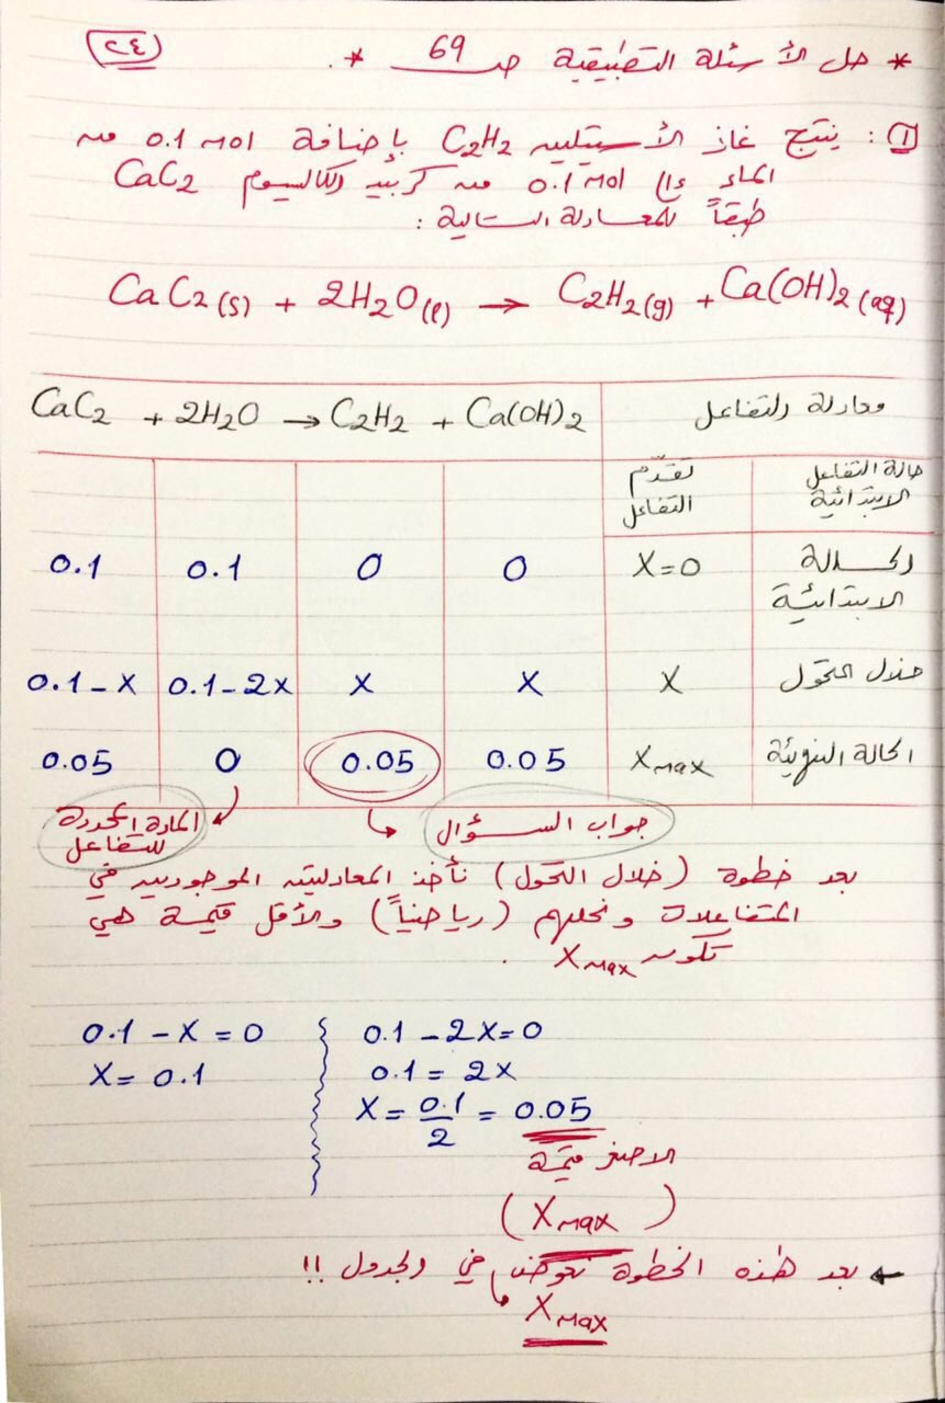 ٢٤
* حل الأسئلة التطبيقية ص 69 *
① : ينتج غاز الأسيتلين C2H2 بإضافة 0.1 mol من
الماء إلى 0.1 mol من كربيد الكالسيوم CaC2
طبقاً للمعادلة التالية :
CaC2(s) + 2H2O(l) → C2H2(g) + Ca(OH)2(aq)
CaC2 + 2H2O → C2H2 + Ca(OH)2 معادلة التفاعل
تقدّم التفاعل حالة التفاعل الابتدائية
0.1 0.1 0 0 X=0 الحالة الابتدائية
0.1-X 0.1-2X X X X خلال التحوّل
0.05 0 0.05 0.05 Xmax الحالة النهائية
المادة المحددة للتفاعل جواب السؤال
بعد خطوة (خلال التحول) نأخذ المعادلتين الموجودين في
المتفاعلات ونحلهم (رياضياً) والأقل قيمة هي
تكون Xmax .
0.1 - X = 0 0.1 - 2X = 0
X = 0.1 0.1 = 2X
X = 0.1/2 = 0.05
الاصغر قيمة
(Xmax)
← بعد هذه الخطوة نعوض في الجدول !!
Xmax